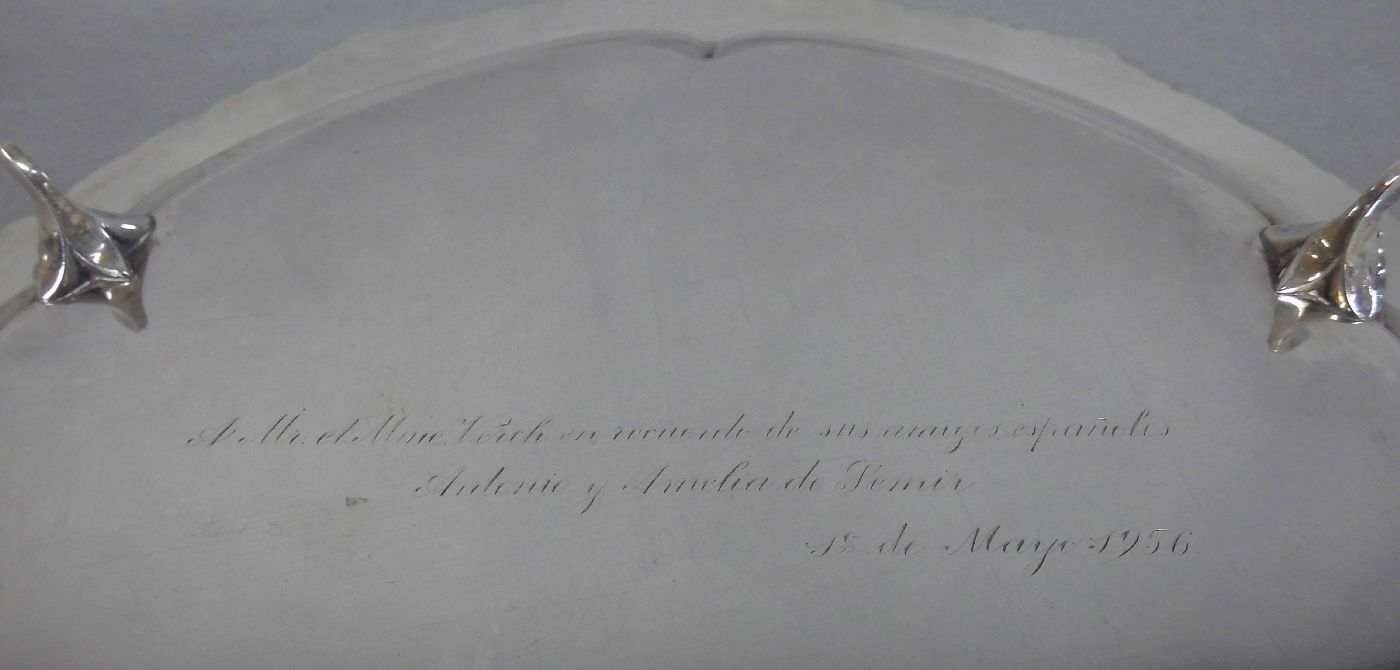 A Mr. et Mme. Verch en recuerdo de sus amigos españoles
Antonio y Amelia de Semir
1º de Mayo 1956